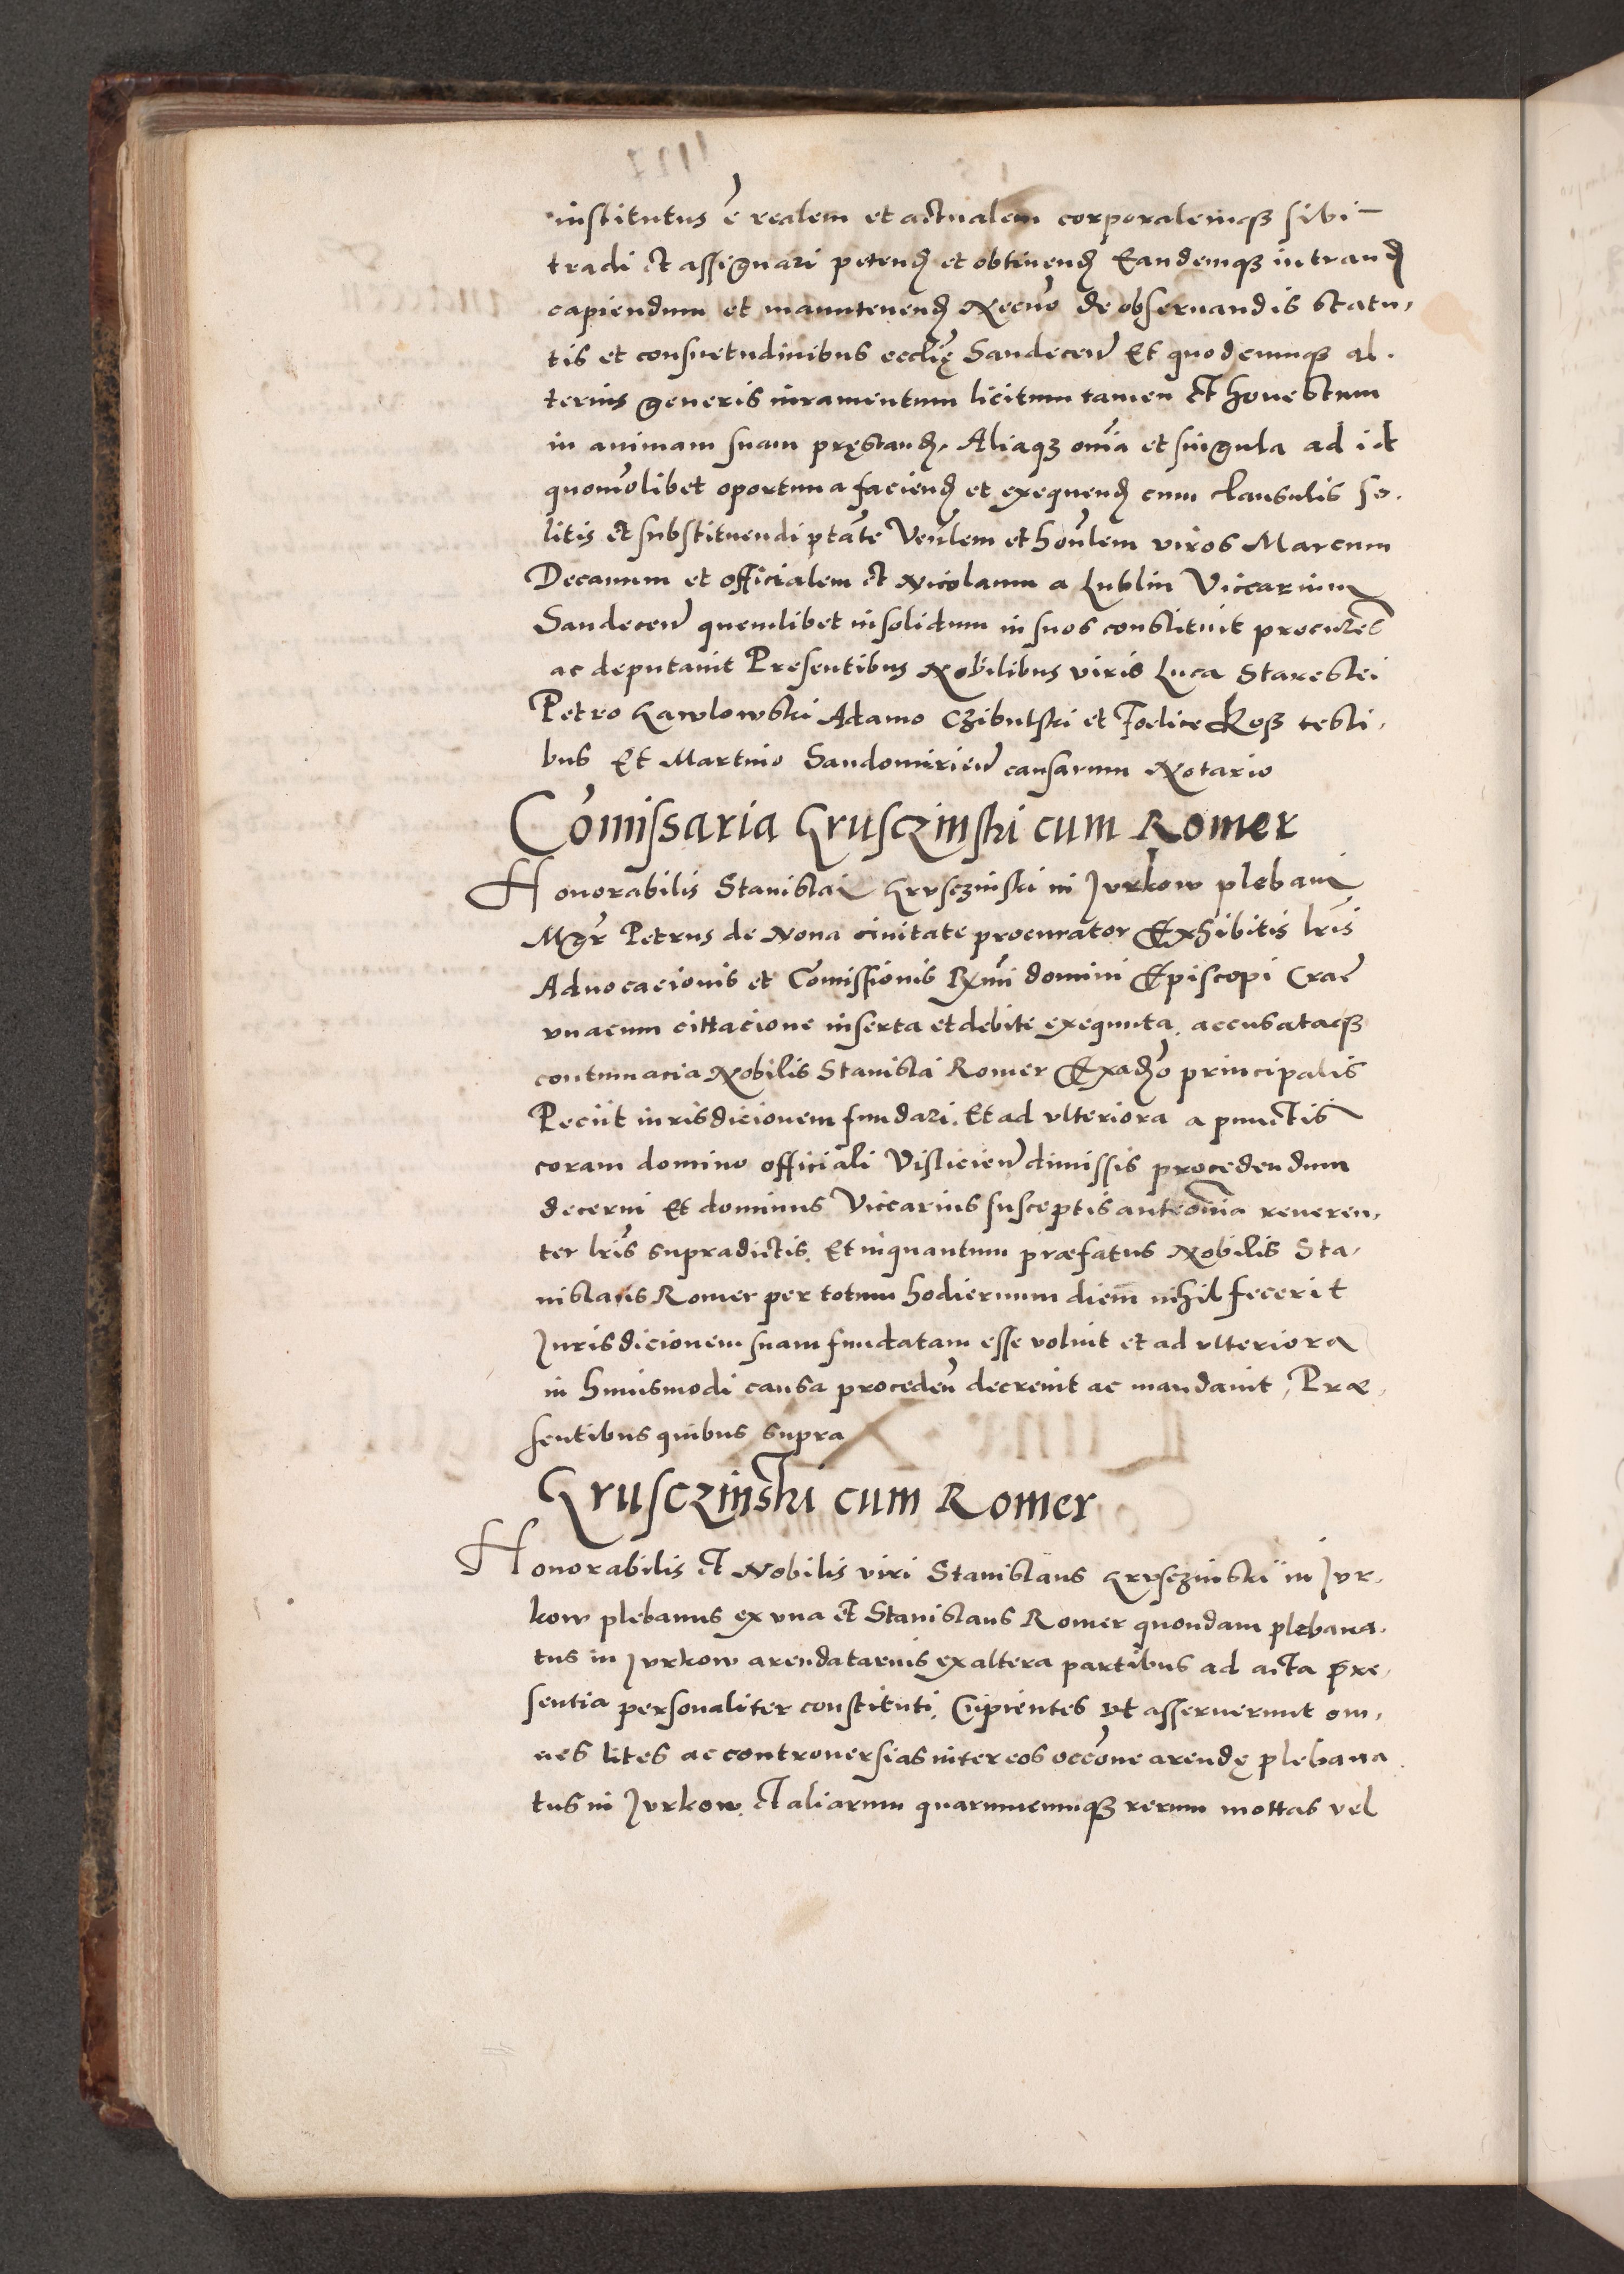 institutus ẽ realem et actualem corporalemqȝ sibi
tradi et assignari petenđ et obtinenđ Eandemqȝ intranđ
capiendum et manutenenđ Necno᷃ de obseruandis statu-
tis et consuetudinibus eccl̃ię Sandecen̄ Et quodcumqȝ al-
terius generis iuramentum licitum tamen et honestum
in animam suam pręstanđ. Aliaqȝ oñia et singula ad id
quomõlibet oportuna facienđ et exequenđ cum clausulis so-
litis et substituendi ptãte Veñlem et hoñlem viros Marcum
Decanum et officialem et Nicolaum a Lublin Viccarium
Sandecen̄ quemlibet insolidum in suos constituit procur̃es
ac deputauit Presentibus Nobilibus viris Luca Starestei
Petro Gawlowski Adamo Czibulski et Foelice Koß testi-
bus Et Martino Sandomirien̄ causarum Notario
Com̃issaria Grusczinski cum Romer
Honorabilis Stanislai Grvsczinski in Jvrkow plebani
Mgr̃ Petrus de Noua ciuitate procurator Exhibitis lr̃is
Aduocacionis et Com̃issionis Rx̃mi domini Episcopi Crac̄
vnacum cittacione inserta et debite exequuta. accusataqȝ
contumacia Nobilis Stanislai Romer Exađo principalis
Peciit iurisdicionem fundari. Et ad vlteriora a punctis
coram domino officiali Vislicien̄ dimissis procedendum
decerni Et dominus Viccarius susceptis anteom̃ia reueren-
ter lr̃is supradictis. Et inquantum præfatus Nobilis Sta-
nislaus Romer per totum hodiernum diem nihil fecerit
Jurisdicionem suam fundatam esse voluit et ad vlteriora
in huiusmodi causa proceden̄ decreuit ac mandauit, Præ-
sentibus quibus supra
Grusczinski cum Romer
Honorabilis et Nobilis viri Stanislaus Grvsczinski in Jvr-
kow plebanus ex vna et Stanislaus Romer quondam plebana-
tus in Jvrkow arendatarius ex altera partibus ad acta præ-
sentia personaliter constituti. Cupientes vt asseruerunt om-
nes lites ac controuersias inter eos occõne arendę plebana-
tus in Jvrkow. et aliarum quarumcumqȝ rerum mottas vel